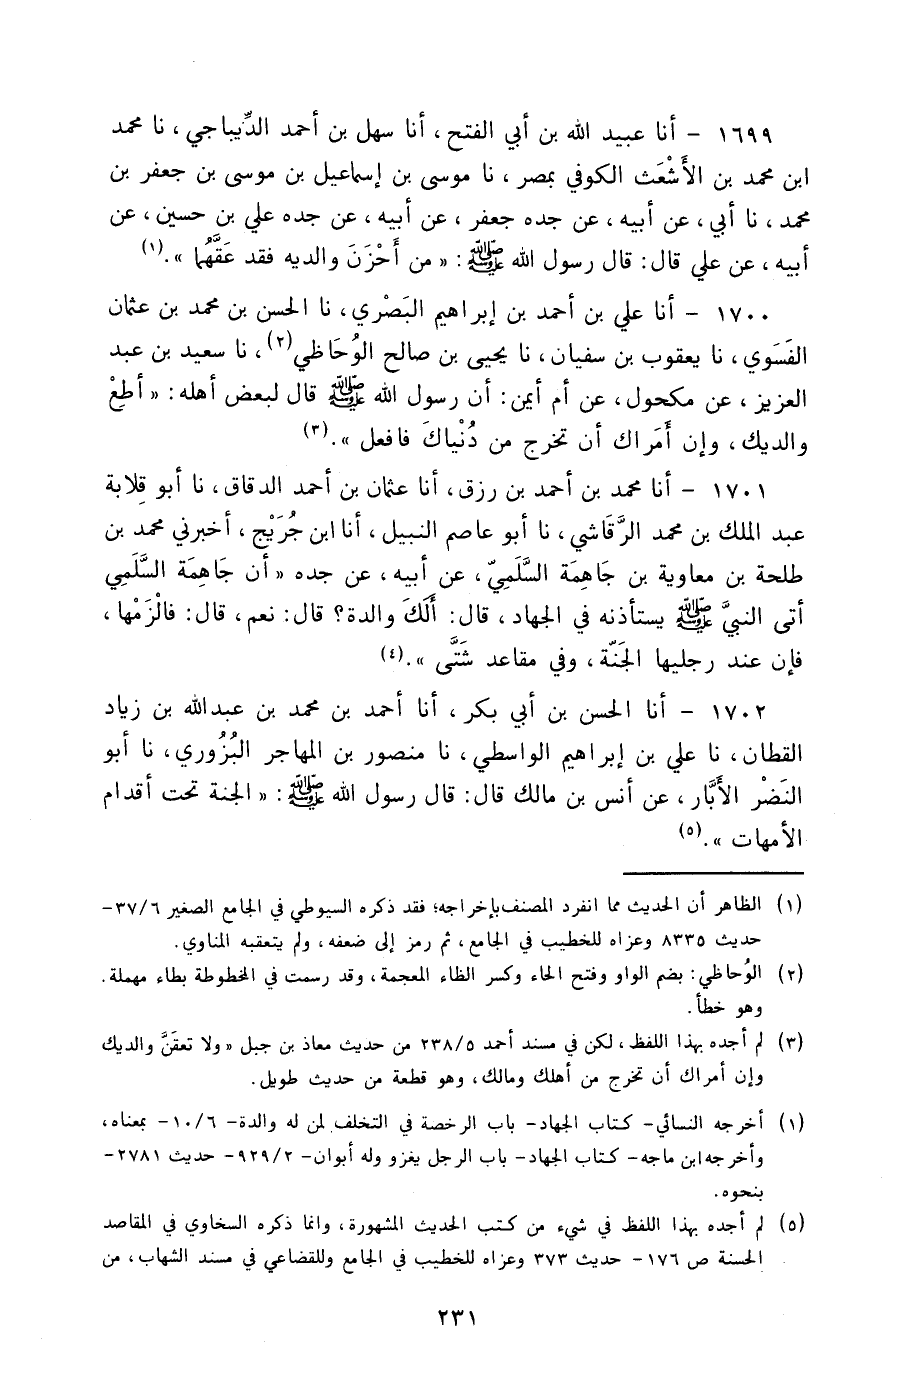 ١٦٩٩ - أنا عبيد الله بن أبي الفتح، أنا سهل بن أحمد الدِّيباجي، نا محمد
ابن محمد بن الأَشْعَث الكوفي بمصر، نا موسى بن إسماعيل بن موسى بن جعفر بن
محمد، نا أبي، عن أبيه، عن جده جعفر، عن أبيه، عن جده علي بن حسين، عن
أبيه، عن علي قال: قال رسول الله ﷺ: « من أَحْزَنَ والديه فقد عَقَّهُما ».(١)
١٧٠٠ - أنا علي بن أحمد بن إبراهيم البَصْري، نا الحسن بن محمد بن عثمان
الفَسَوي، نا يعقوب بن سفيان، نا يحيى بن صالح الوُحَاظي(٢)، نا سعيد بن عبد
العزيز، عن مكحول، عن أم أيمن: أن رسول الله ﷺ قال لبعض أهله: « أطعْ
والديك، وإن أَمَراك أن تخرج من دُنْياكَ فافعل ».(٣)
١٧٠١ - أنا محمد بن أحمد بن رزق، أنا عثمان بن أحمد الدقاق، نا أبو قِلابة
عبد الملك بن محمد الرَّقَاشي، نا أبو عاصم النبيل، أنا ابن جُرَيْج، أخبرني محمد بن
طلحة بن معاوية بن جَاهِمَة السَّلَميّ، عن أبيه، عن جده « أن جَاهِمَة السَّلَمي
أتى النبيَّ ﷺ يستأذنه في الجهاد، قال: أَلَكَ والدة؟ قال: نعم، قال: فالْزَمْها،
فإن عند رجليها الجَنّة، وفي مقاعد شَتَّى ».(٤)
١٧٠٢ - أنا الحسن بن أبي بكر، أنا أحمد بن محمد بن عبدالله بن زياد
القطان، نا علي بن إبراهيم الواسطي، نا منصور بن المهاجر البُزُوري، نا أبو
النَضْر الأَبَّار، عن أنس بن مالك قال: قال رسول الله ﷺ: « الجنة تحت أقدام
الأمهات ».(٥)
(١) الظاهر أن الحديث مما انفرد المصنف بإخراجه؛ فقد ذكره السيوطي في الجامع الصغير ٣٧/٦-
حديث ٨٣٣٥ وعزاه للخطيب في الجامع، ثم رمز إلى ضعفه، ولم يتعقبه المناوي.
(٢) الوُحاظي: بضم الواو وفتح الحاء وكسر الظاء المعجمة، وقد رسمت في المخطوطة بطاء مهملة.
وهو خطأ.
(٣) لم أجده بهذا اللفظ، لكن في مسند أحمد ٢٣٨/٥ من حديث معاذ بن جبل « ولا تعقَنَّ والديك
وإن أمراك أن تخرج من أهلك ومالك، وهو قطعة من حديث طويل.
(١) أخرجه النسائي- كتاب الجهاد- باب الرخصة في التخلف لمن له والدة- ١٠/٦- بمعناه،
وأخرجه ابن ماجه- كتاب الجهاد- باب الرجل يغزو وله أبوان- ٩٢٩/٢- حديث ٢٧٨١-
بنحوه.
(٥) لم أجده بهذا اللفظ في شيء من كتب الحديث المشهورة، وانما ذكره السخاوي في المقاصد
الحسنة ص ١٧٦- حديث ٣٧٣ وعزاه للخطيب في الجامع وللقضاعي في مسند الشهاب، من
٢٣١